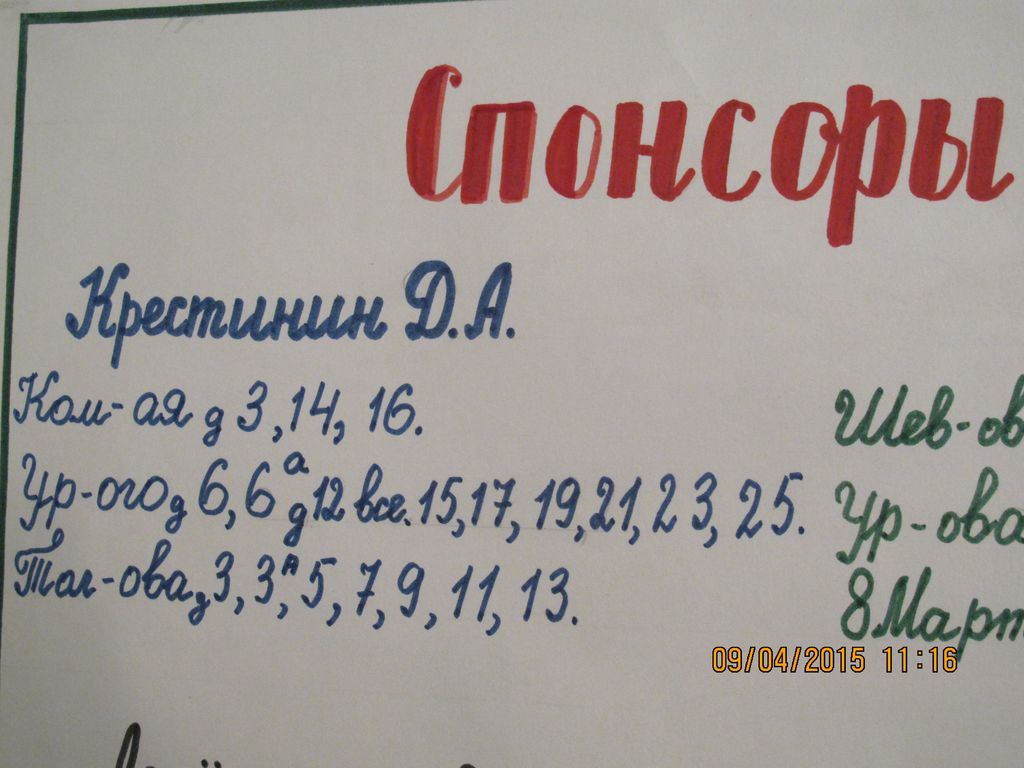 Спонсоры
Крестинин Д.А.
Ком-ая д 3, 14, 16.
Ур-ого д 6, 6а д 12 все. 15, 17, 19, 21, 23, 25.
Тол-ова д 3, 3А, 5, 7, 9, 11, 13.
Шев-ов
Ур-ова
8 Март
09/04/2015 11:16